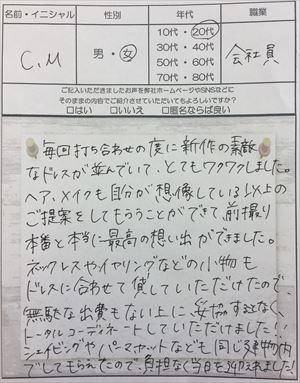 名前・イニシャル 性別 年代 職業
C.M 男・女 10代・20代 会社員
30代・40代
50代・60代
70代・80代
ご記入いただきましたお声を弊社ホームページやSNSなどに
そのままの内容でご紹介させていただいてもよろしいですか？
□はい □いいえ □匿名ならば良い
毎回打ち合わせの度に新作の素敵
なドレスが並んでいて、とてもワクワクしました。
ヘア、メイクも自分が想像している以上の
ご提案をしてもらうことができて、前撮り
本番と本当に最高の想い出ができました。
ネックレスやイヤリングなどの小物も
ドレスに合わせて貸していただけたので、
無駄な出費もない上に妥協することなく、
トータルコーディネートしていただけました!!
シェイビングやパーマセットなども同じ建物内
でしてもらえたので、負担なく当日を迎えれました!